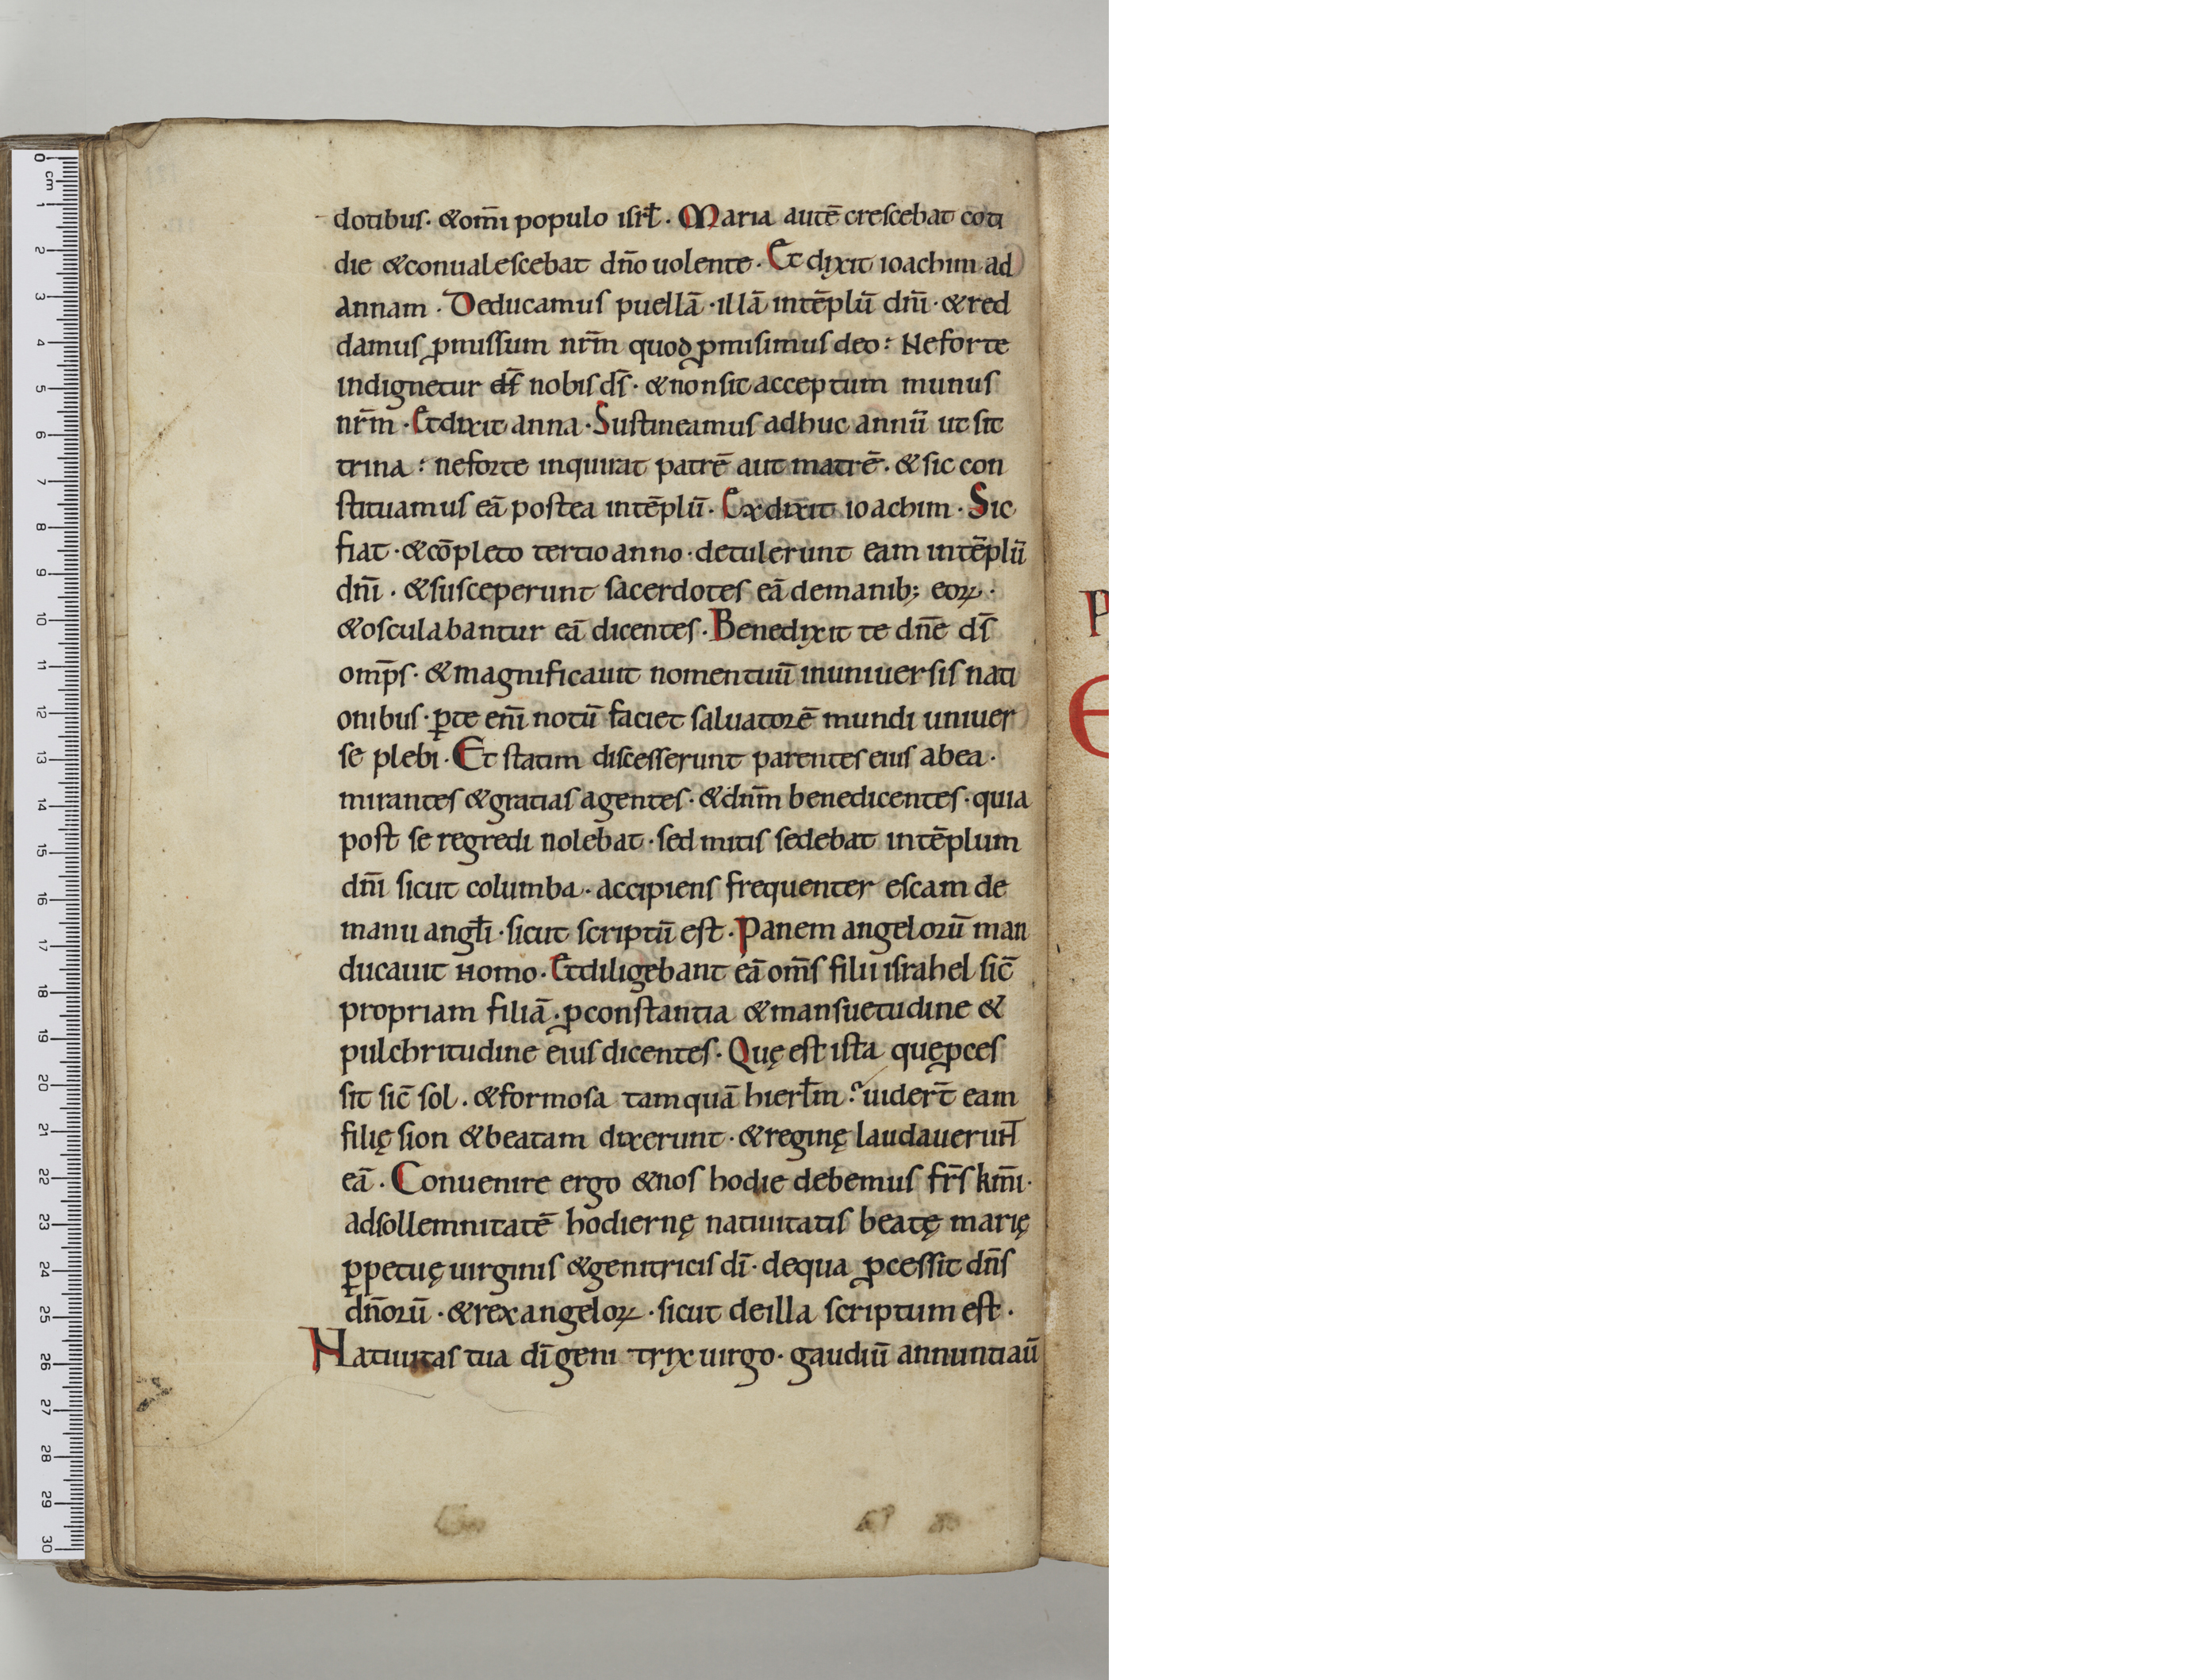 dotibus. &om̄i populo isrł. Maria autē crescebat coti
die &conualescebat dn̄o uolente. Et dixit ioachim ad
annam. Deducamus puellā. illā intēplū dn̄i. &red
damus ꝓmissum nr̄m quod ꝓmisimus deo: Neforte
indignetur nobis ds̄. &nonsit acceptum munus
nr̄m. Etdixit anna. Sustineamus adhuc annū ut sit
trina: neforte inquirat patrē aut matrē. &sic con
stituamus eā postea intēplū. Exdixit ioachim. Sic
fiat. &cōpleto tertio anno. detulerunt eam intēplū
dn̄i. &susceperunt sacerdotes eā demanib; eoꝝ.
&osculabantur eā dicentes. Benedixit te dn̄e ds̄
omp̄s. &magnificauit nomentuū inuniuersis nati
onibus. ꝑte eni̅ notū faciet saluatorē mundi uniuer
se plebi. Et statim discesserunt parentes eius abea.
mirantes &gratias agentes. &dn̄m benedicentes. quia
post se regredi nolebat. sed mitis sedebat intēplum
dn̄i sicut columba. accipiens frequenter escam de
manu angłi. sicut scriptū est. Panem angelorū man
ducauit homo. Etdiligebant eā om̄s filii israhel sic̄
propriam filiā. ꝓconstantia &mansuetudine &
pulchritudine eius dicentes. Quę est ista quęꝓces
sit sic̄ sol. &formosa tamquā hierłm: uider̄t eam
filię sion &beatam dixerunt. &reginę laudauerunt̄
eā. Conuenire ergo &nos hodie debemus fr̄s km̄i.
adsollemnitatē hodiernę natiuitatis beatę marię
ꝑpetuę uirginis &genitricis dī. dequa ꝓcessit dn̄s
dn̄orū. &rex angeloꝝ. sicut deilla scriptum est.
Natiuitas tua dī geni trix uirgo. gaudiū annuntiaū